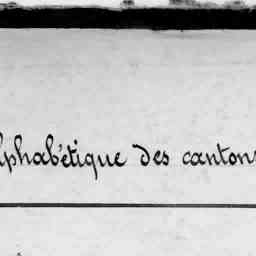 lphabétique des cantons